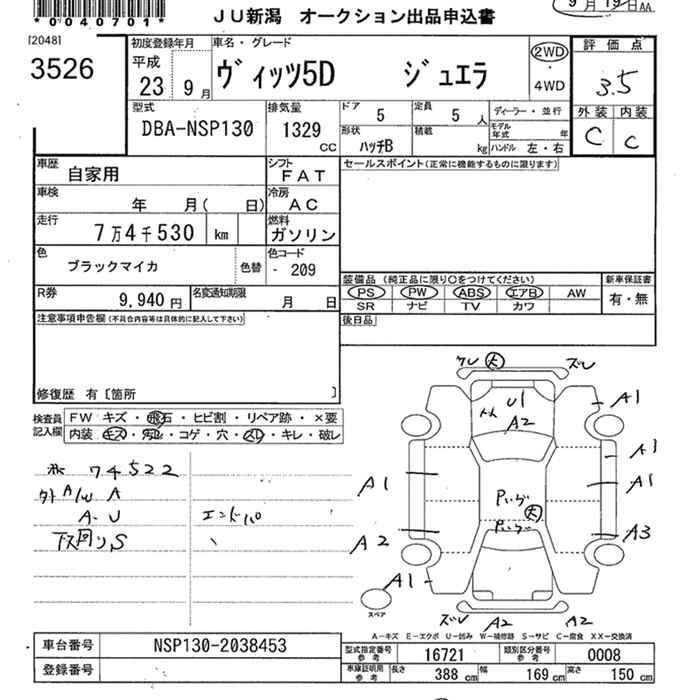 *040701*
JU新潟 オークション出品申込書
9月19日AA
[2048]
3526
初度登録年月
平成
23 9月
車名・グレード
ヴィッツ5D ジュエラ
2WD
・
4WD
評価点
3.5
外装 内装
C C
型式
DBA-NSP130
排気量
1329 cc
ドア 5
定員 5 人
ディーラー・並行
形状 ハッチB
積載 kg
モデル年式 年
ハンドル 左・右
車歴 自家用
シフト FAT
セールスポイント(正常に機能するものに限ります)
車検 年 月( 日)
冷房 AC
走行 7万4千530 km
燃料 ガソリン
色 ブラックマイカ 色替
色コード - 209
装備品 (純正品に限り○をつけてください)
新車保証書
PS PW ABS エアB AW
有・無
SR ナビ TV カワ
R券 9,940円
名変通知期限 月 日
後日品
注意事項申告欄(不具合内容等は具体的に記入して下さい)
修復歴 有〔箇所 〕
検査員記入欄
FW キズ・飛石・ヒビ割・リペア跡・×要
内装 キズ・汚レ・コゲ・穴・スレ・キレ・破レ
74522
外 A/W A
A-U
エンドパP
下回りS
クレ 大 ズレ
U1
A2
A1
A1
A1
A1
A2
A3
A1
大
ズレ A2 A2
スペア
A-キズ E-エクボ U-凹み W-補修跡 S-サビ C-腐食 XX-交換済
車台番号 NSP130-2038453
登録番号
型式指定番号 参考 16721
類別区分番号 参考 0008
車庫証明用 参考 長さ 388 cm 幅 169 cm 高さ 150 cm